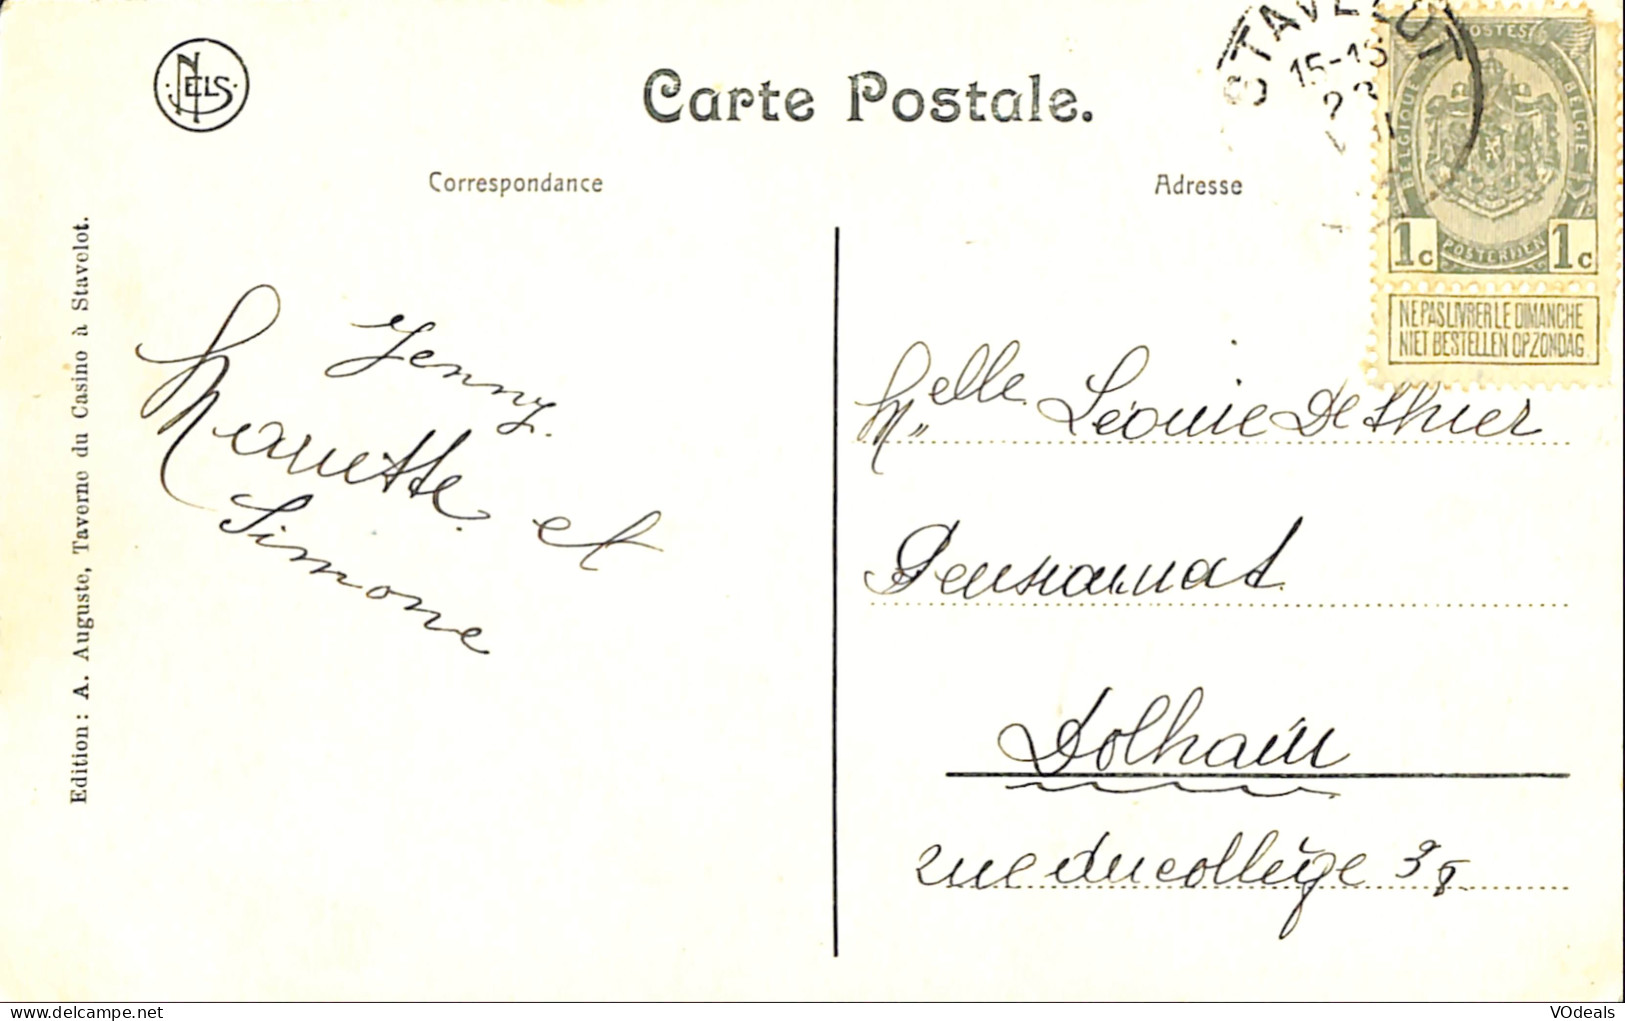 NELS
Carte Postale.
STAVELOT
15-16
POSTES
BELGIQUE
BELGIE
POSTERIJEN
1c 1c
NE PAS LIVRER LE DIMANCHE
NIET BESTELLEN OP ZONDAG
Correspondance
Adresse
Edition: A. Auguste, Taverne du Casino à Stavelot.
Jenny.
Mariette et
Simone
Melle Léonie Dethier
Pensionnat
Dolhain
rue du collège 38
VOdeals